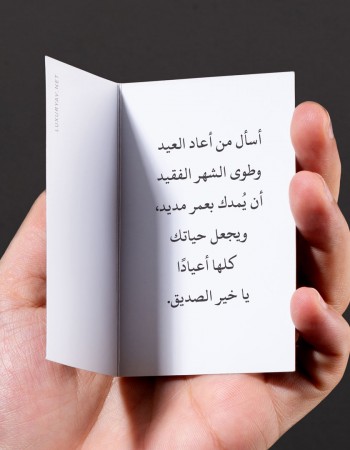 أسأل من أعاد العيد
وطوى الشهر الفقيد
أن يُمدك بعمر مديد،
ويجعل حياتك
كلها أعيادًا
يا خير الصديق.